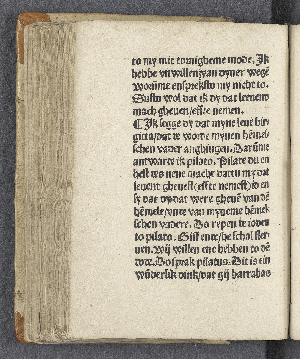 to my mit tornigheme mode. Ik
hebbe vn willen van dyner wegē
worūme ensprekstu my nicht to.
Sustu wol dat ik dy dat leuent
mach gheuen/effte nemen.
Ik segge dy dat myne leue bir-
gitta/dat te worde mynen hēmel-
schen vader anghingen. Darūme
antwarde ik pilato. Pilate du en
hest nene macht dattu my dat
leuent gheuest/effte nemest/id en
sy dat dy dat were gheuē van dē
hēmele/vnte van myneme hēmel-
schen vadere. Do repen te ioden
to pilato. Gifft ente/he schal ster-
uen. Wij willen ene hebben to dē
dode. Do sprak pilatus. Dit is ein
wūderlik dink/dat gij barrabas